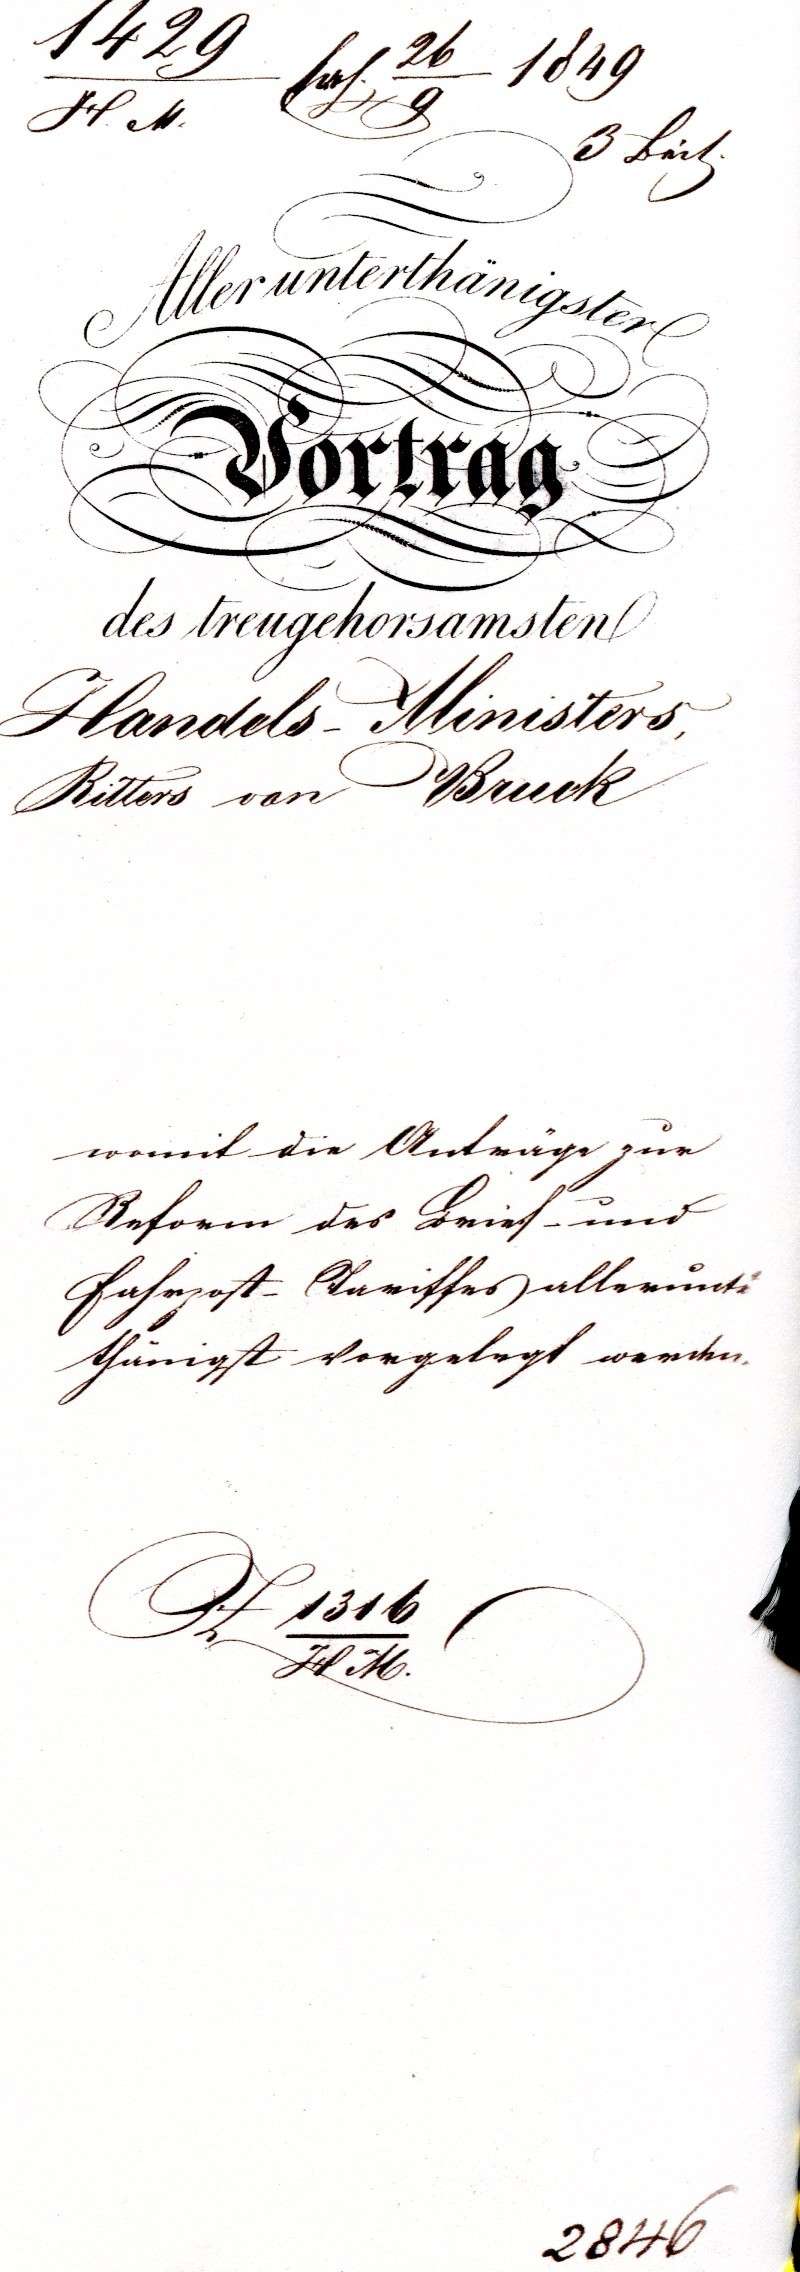 1429 26 1849
H. M. 9
3
Allerunterthänigster
Vortrag
des treugehorsamsten
Handels-Ministers,
Ritters von Bruck
womit die Anträge zur
Reform des Brief- und
Fahrpost-Tariffes allerunt
thänigst vorgelegt werden.
Z 1316
H M.
2846